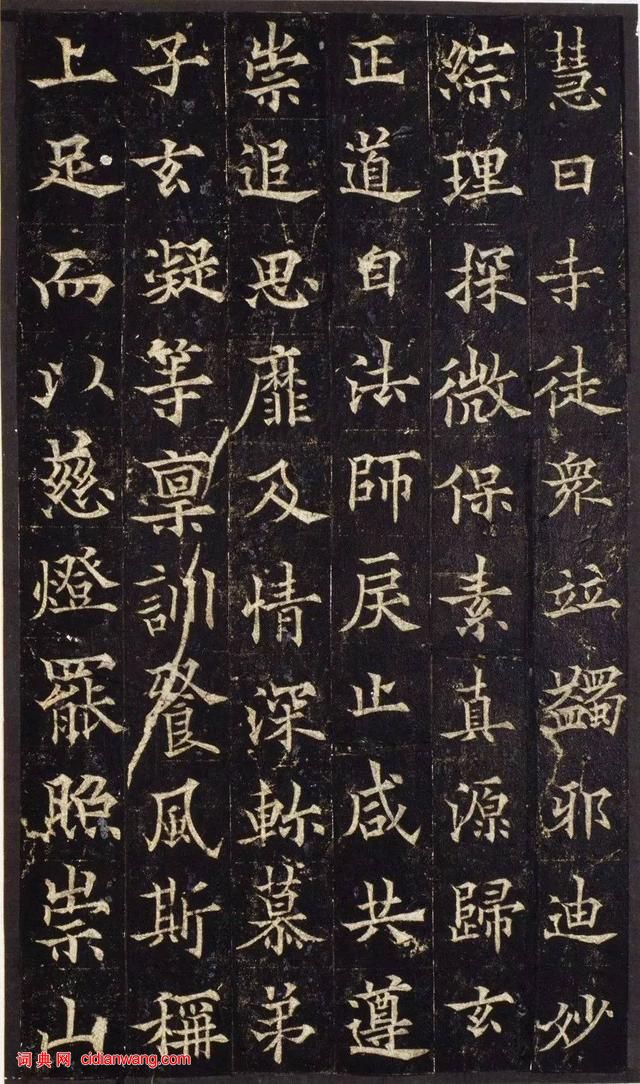 慧日寺徒衆竝蠲邪迪妙
綜理探微保素真源歸玄
正道自法師戾止咸共遵
崇追思靡及情深軫慕弟
子玄凝等稟訓飡風斯稱
上足而以慈燈罷照崇山
词典网 cidianwang.com